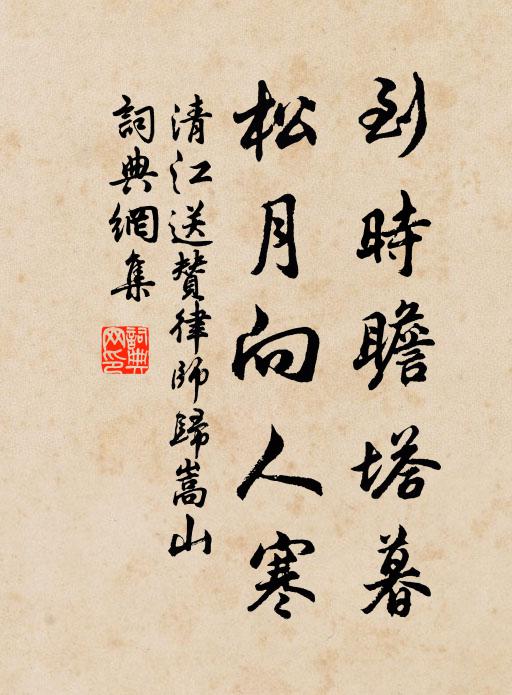 到時瞻塔暮
松月向人寒
清江送賛律師歸嵩山
詞典網集
詞典網印